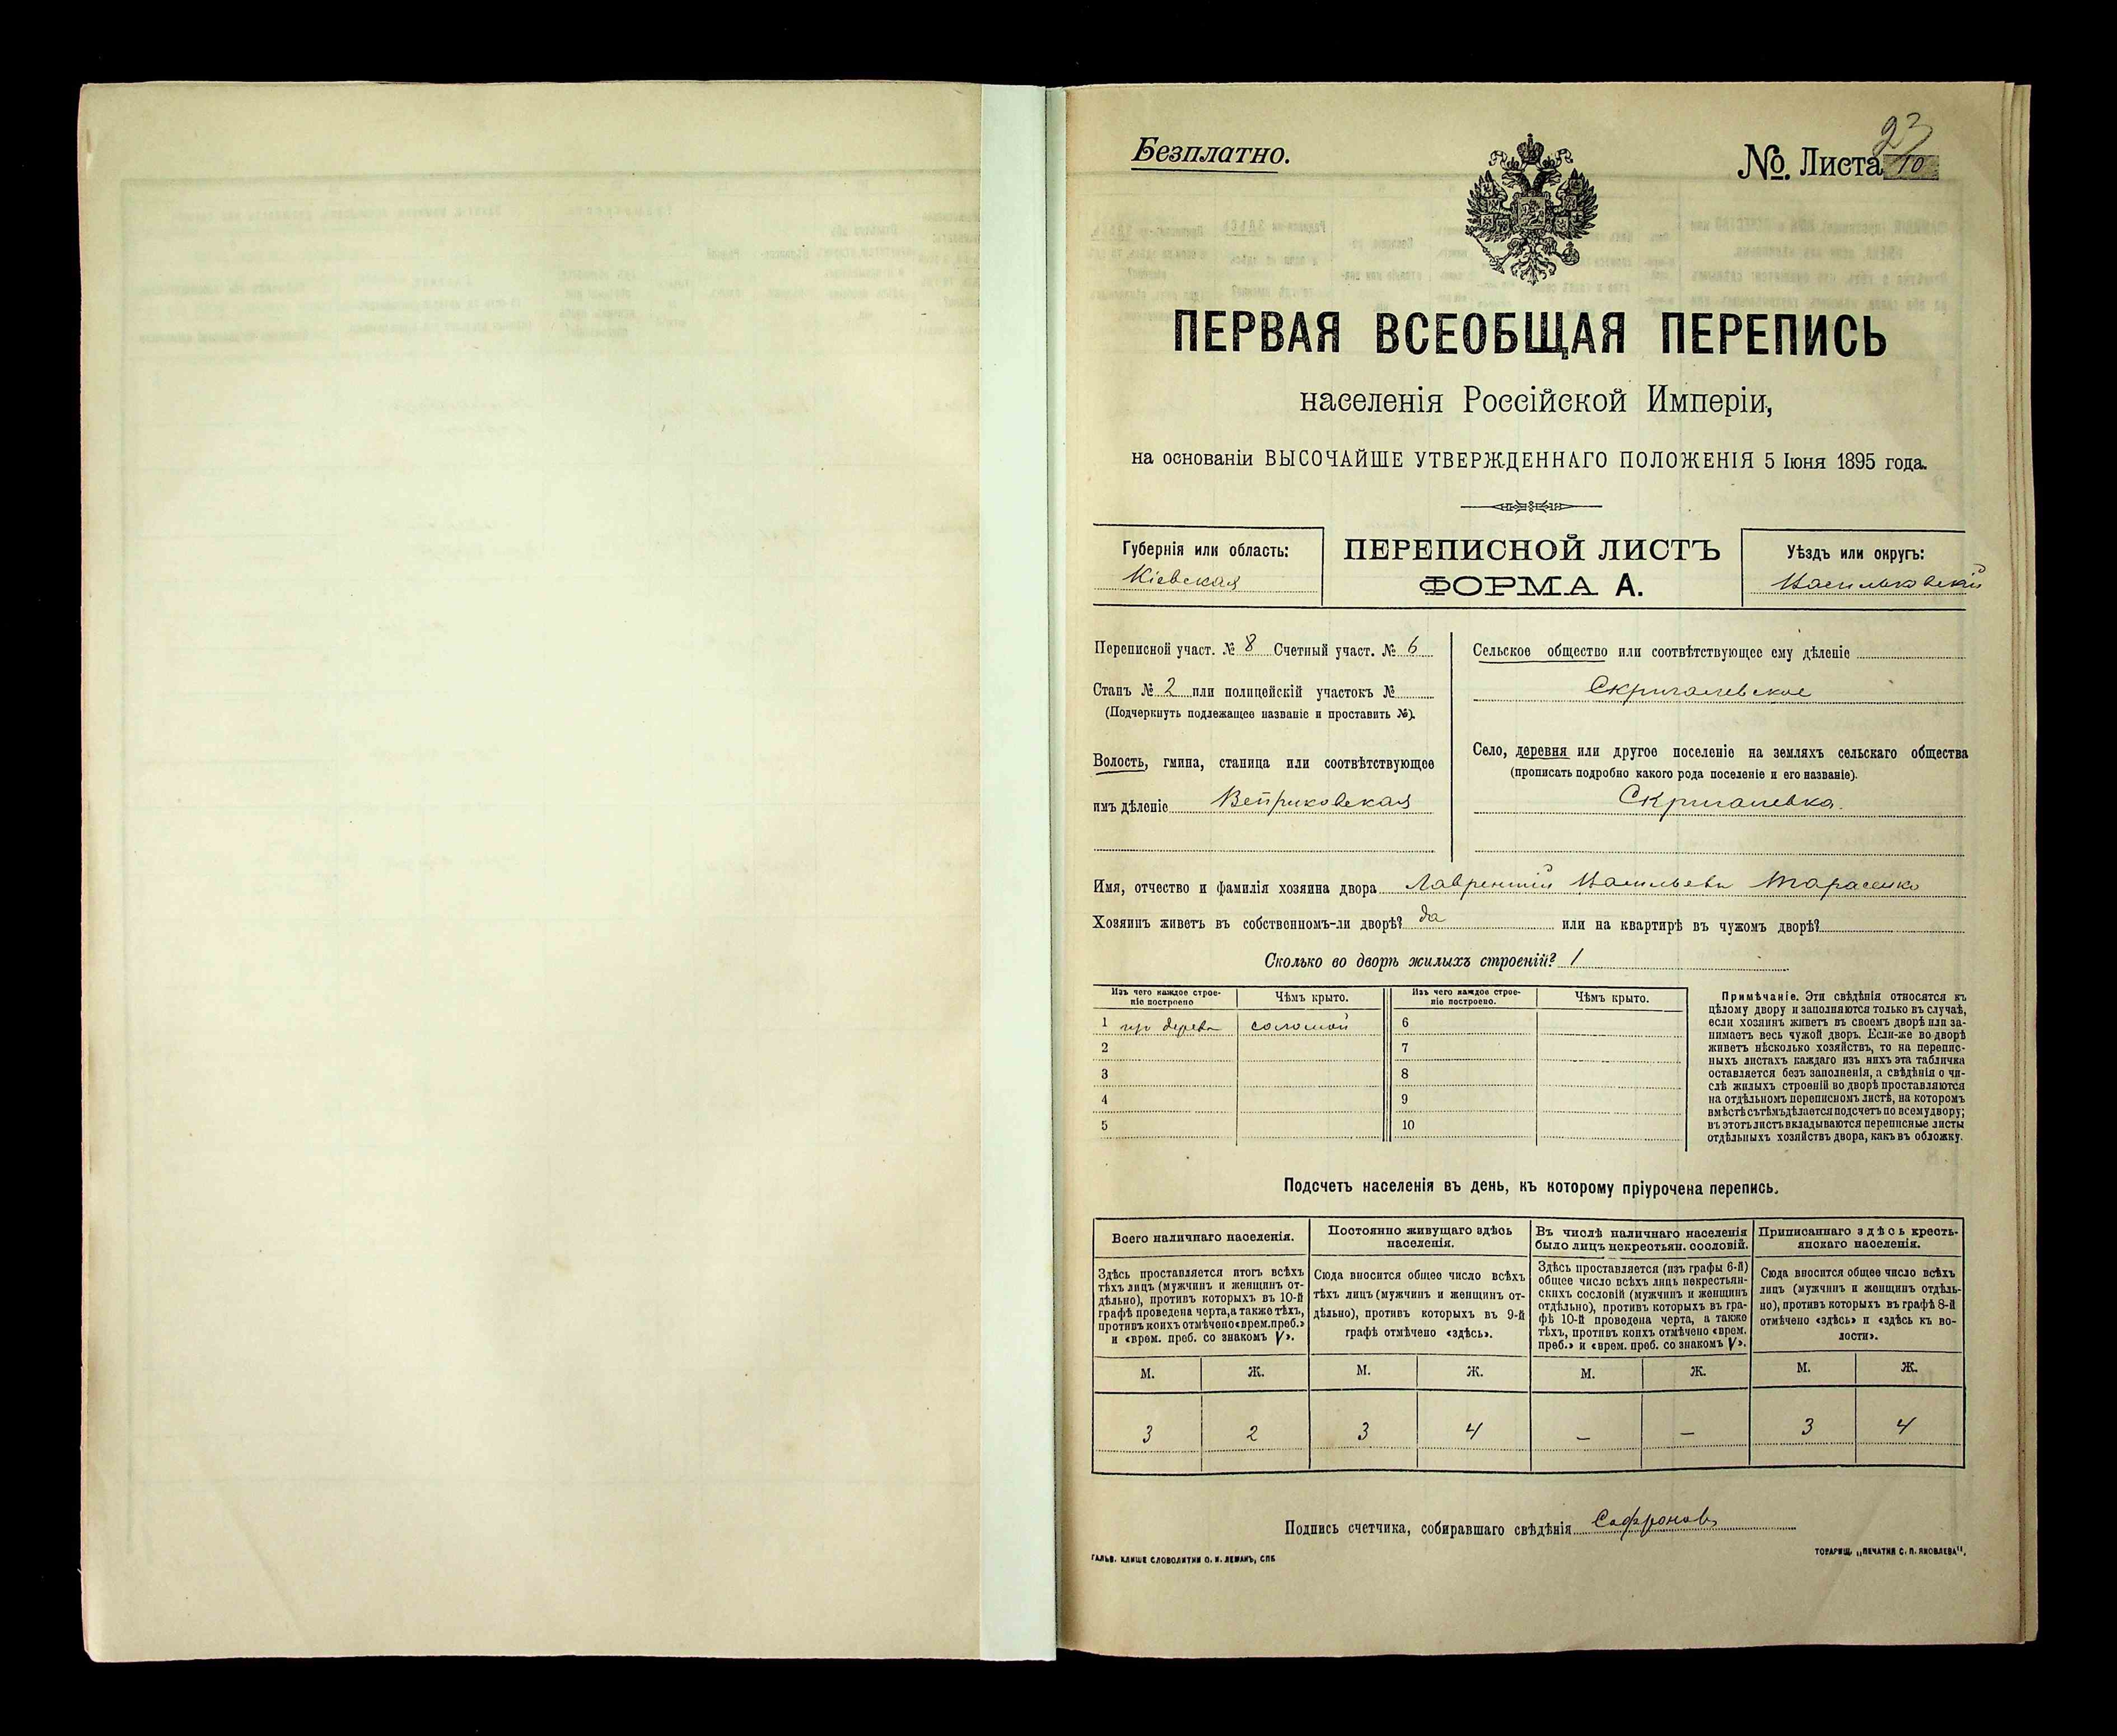 Безплатно.
№ Листа 10
23
ПЕРВАЯ ВСЕОБЩАЯ ПЕРЕПИСЬ
населенія Россійской Имперіи,
на основаніи ВЫСОЧАЙШЕ УТВЕРЖДЕННАГО ПОЛОЖЕНІЯ 5 Іюня 1895 года.
Губернія или область:
Кіевская
ПЕРЕПИСНОЙ ЛИСТЪ
ФОРМА А.
Уѣздъ или округъ:
Васильковскій
Переписной участ. № 8 Счетный участ. № 6
Станъ № 2 или полицейскій участокъ №
(Подчеркнуть подлежащее названіе и проставить №).
Волость, гмина, станица или соотвѣтствующее
имъ дѣленіе Веприковская
Сельское общество или соотвѣтствующее ему дѣленіе
Скригалевское
Село, деревня или другое поселеніе на земляхъ сельскаго общества
(прописать подробно какого рода поселеніе и его названіе).
Скригалевка.
Имя, отчество и фамилія хозяина двора Лаврентій Васильевъ Тарасенко
Хозяинъ живетъ въ собственномъ-ли дворѣ? да или на квартирѣ въ чужомъ дворѣ?
Сколько во дворѣ жилыхъ строеній? 1
Изъ чего каждое строе-
ніе построено
Чѣмъ крыто.
Изъ чего каждое строе-
ніе построено.
Чѣмъ крыто.
1 изъ дерева соломой 6
2 7
3 8
4 9
5 10
Примѣчаніе. Эти свѣдѣнія относятся къ
цѣлому двору и заполняются только въ случаѣ,
если хозяинъ живетъ въ своемъ дворѣ или за-
нимаетъ весь чужой дворъ. Если-же во дворѣ
живетъ нѣсколько хозяйствъ, то на перепис-
ныхъ листахъ каждаго изъ нихъ эта табличка
оставляется безъ заполненія, а свѣдѣнія о чи-
слѣ жилыхъ строеній во дворѣ проставляются
на отдѣльномъ переписномъ листѣ, на которомъ
вмѣстѣ съ тѣмъ дѣлается подсчетъ по всему двору;
въ этотъ листъ вкладываются переписные листы
отдѣльныхъ хозяйствъ двора, какъ въ обложку.
Подсчетъ населенія въ день, къ которому пріурочена перепись.
Всего наличнаго населенія.
Здѣсь проставляется итогъ всѣхъ
тѣхъ лицъ (мужчинъ и женщинъ от-
дѣльно), противъ которыхъ въ 10-й
графѣ проведена черта, а также тѣхъ,
противъ коихъ отмѣчено «врем. преб.»
и «врем. преб. со знакомъ V».
Постоянно живущаго здѣсь
населенія.
Сюда вносится общее число всѣхъ
тѣхъ лицъ (мужчинъ и женщинъ от-
дѣльно), противъ которыхъ въ 9-й
графѣ отмѣчено «здѣсь».
Въ числѣ наличнаго населенія
было лицъ некрестьян. сословій.
Здѣсь проставляется (изъ графы 6-й)
общее число всѣхъ лицъ некрестьян-
скихъ сословій (мужчинъ и женщинъ
отдѣльно), противъ которыхъ въ гра-
фѣ 10-й проведена черта, а также
тѣхъ, противъ коихъ отмѣчено «врем.
преб.» и «врем. преб. со знакомъ V».
Приписаннаго здѣсь кресть-
янскаго населенія.
Сюда вносится общее число всѣхъ
лицъ (мужчинъ и женщинъ отдѣль-
но), противъ которыхъ въ графѣ 8-й
отмѣчено «здѣсь» и «здѣсь къ во-
лости».
М. Ж. М. Ж. М. Ж. М. Ж.
3 2 3 4 – – 3 4
Подпись счетчика, собиравшаго свѣдѣнія Сафроновъ
ГАЛЬВ. КЛИШЕ СЛОВОЛИТНИ О. И. ЛЕМАНЪ, СПБ.
ТОВАРИЩ. „ПЕЧАТНЯ С. П. ЯКОВЛЕВА".